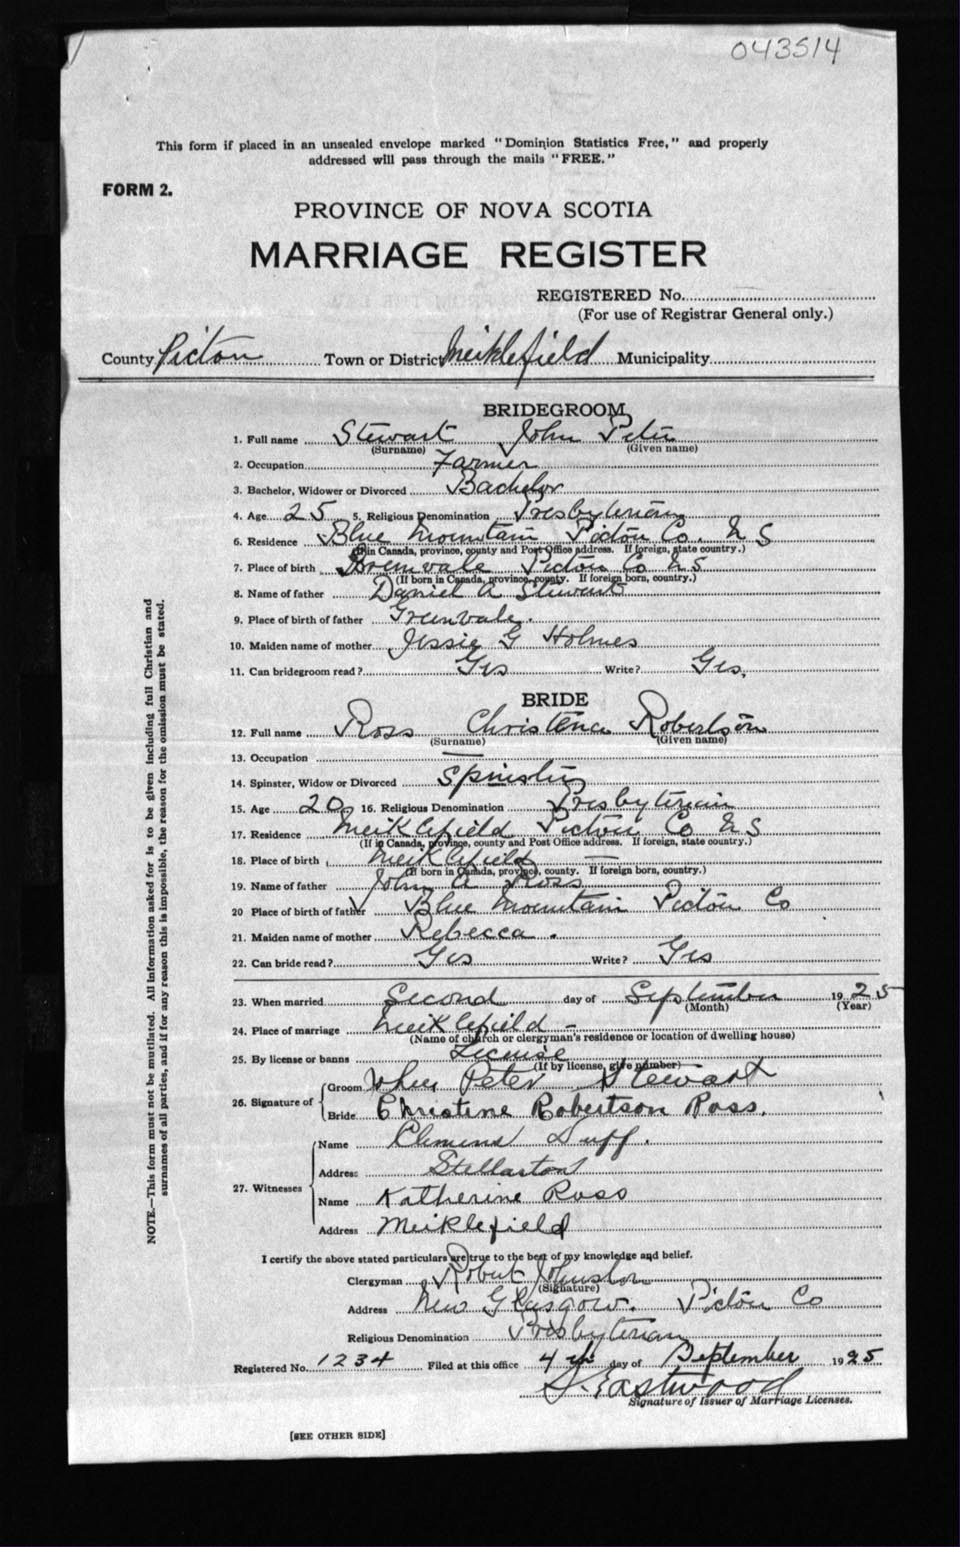 043514
This form if placed in an unsealed envelope marked "Dominion Statistics Free," and properly
addressed will pass through the mails "FREE."
FORM 2.
PROVINCE OF NOVA SCOTIA
MARRIAGE REGISTER
REGISTERED No.
(For use of Registrar General only.)
County Pictou Town or District Meiklefield Municipality
BRIDEGROOM
1. Full name Stewart John Peter
(Surname) (Given name)
2. Occupation Farmer
3. Bachelor, Widower or Divorced Bachelor
4. Age 25 5. Religious Denomination Presbyterian
6. Residence Blue Mountain Pictou Co. N S
(If in Canada, province, county and Post Office address. If foreign, state country.)
7. Place of birth Pictou Co N S
(If born in Canada, province, county. If foreign born, country.)
8. Name of father Daniel A Stewart
9. Place of birth of father Greenvale.
10. Maiden name of mother Jessie G Holmes
11. Can bridegroom read? Yes Write? Yes.
BRIDE
12. Full name Ross Christena Robertson
(Surname) (Given name)
13. Occupation —
14. Spinster, Widow or Divorced Spinster
15. Age 20 16. Religious Denomination Presbyterian
17. Residence Meiklefield Pictou Co N S
(If in Canada, province, county and Post Office address. If foreign, state country.)
18. Place of birth Meiklefield —
(If born in Canada, province, county. If foreign born, country.)
19. Name of father John A Ross
20 Place of birth of father Blue Mountain Pictou Co
21. Maiden name of mother Rebecca .
22. Can bride read? Yes Write? Yes
23. When married Second day of September 1925
(Month) (Year)
24. Place of marriage Meiklefield -
(Name of church or clergyman's residence or location of dwelling house)
25. By license or banns License
(If by license, give number)
26. Signature of
Groom John Peter Stewart
Bride Christine Robertson Ross.
27. Witnesses
Name Duff.
Address Stellarton
Name Katherine Ross
Address Meiklefield
I certify the above stated particulars are true to the best of my knowledge and belief.
Clergyman Robert Johnston
(Signature)
Address New Glasgow. Pictou Co
Religious Denomination Presbyterian
Registered No. 1234 Filed at this office 4th day of September 1925
S. Eastwood
Signature of Issuer of Marriage Licenses.
[SEE OTHER SIDE]
NOTE.—This form must not be mutilated. All information asked for is to be given including full Christian and
surnames of all parties, and if for any reason this is impossible, the reason for the omission must be stated.